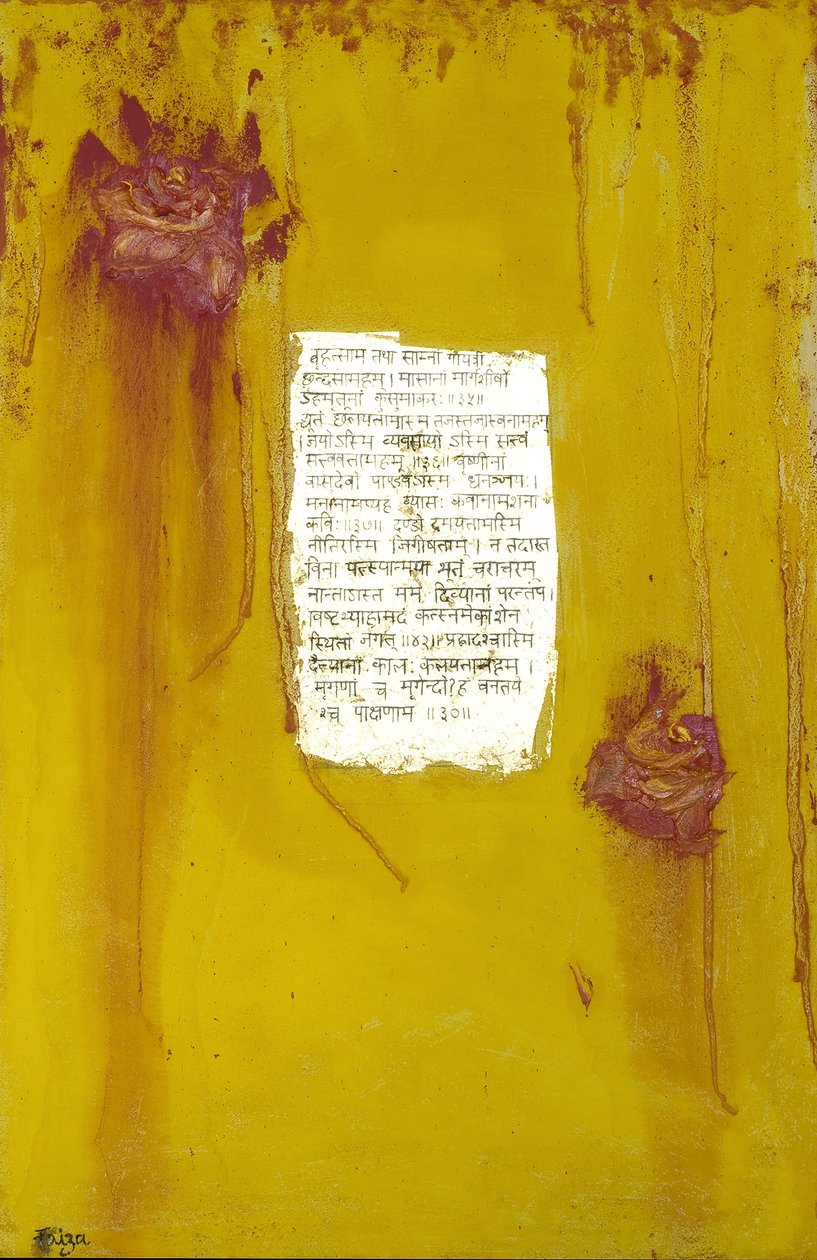 बृहत्साम तथा साम्नां गायत्री
छन्दसामहम् । मासानां मार्गशीर्षो
ऽहमृतूनां कुसुमाकरः ॥३५॥
द्यूतं छलयतामास्म तेजस्तेजास्वनामहम्
। जयोऽस्मि व्यवसायो ऽस्मि सत्त्वं
सत्त्ववतामहम् ॥३६॥ वृष्णीनां
वासदेवो पाण्डवाऽस्म धनञ्जयः ।
मनानामप्यहं व्यासः कवानामशना
कविः ॥३७॥ दण्डो दमयतामस्मि
नीतिरस्मि जिगीषताम् । न तदास्त
विना यत्स्यान्मया भतं चराचरम्
नान्ताऽास्त मम दिव्यानां परन्तप ।
विष्टभ्याहामदं कत्स्नमेकांशेन
स्थितो जगत् ॥४२॥ प्रह्लादश्चास्मि
दैत्यानां कालः कलयतामहम् ।
मृगणां च मृगेन्दो?ह वनतेय
श्च पाक्षणाम ॥३०॥
Faiza